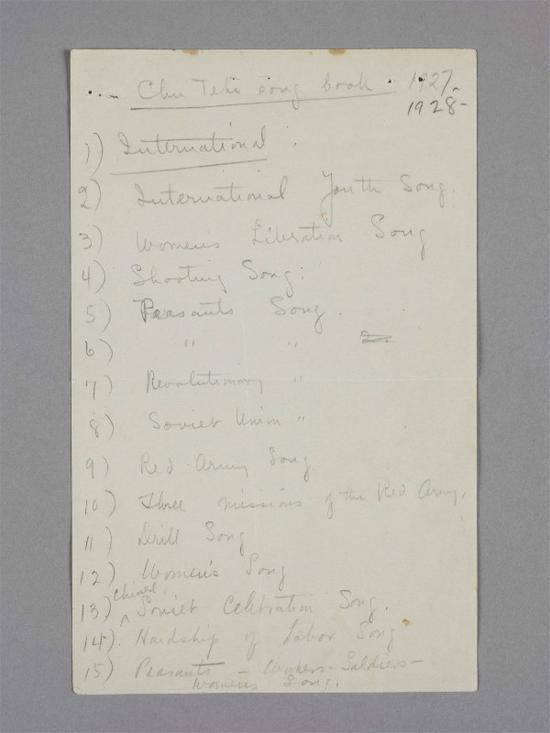 Chu Teh's song book - 1927-
1928-
1) International.
2) International Youth Song.
3) Women's Liberation Song
4) Shooting Song:
5) Peasants Song.
6) " "
7) Revolutionary "
8) Soviet Union "
9) Red Army Song
10) Three missions of the Red Army.
11) Drill Song
12) Women's Song
Chinese
13) ^ Soviet Celebration Song.
14). Hardship of Labor Song
15) Peasants - Workers - Soldiers -
Women's Song.